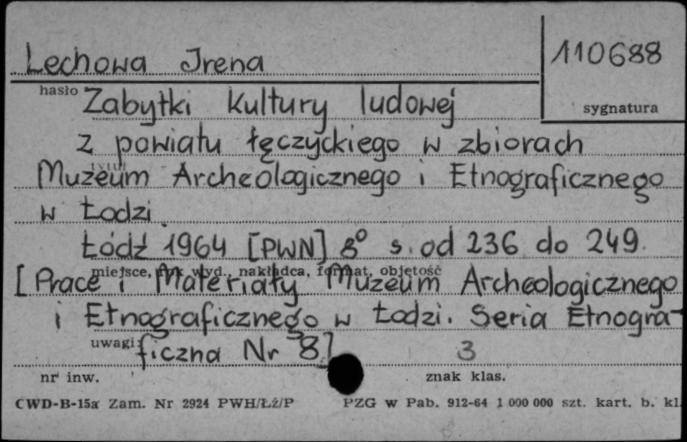 Lechowa Irena
110688
hasło
sygnatura
Zabytki Kultury ludowej
z powiatu łęczyckiego w zbiorach
tytuł
Muzeum Archeologicznego i Etnograficznego
w Łodzi
Łódź 1964 [PWN] 8° s. od 236 do 249.
miejsce, rok wyd., nakładca, format, objętość
[Prace i Materiały Muzeum Archeologicznego
i Etnograficznego w Łodzi. Seria Etnogra-
uwagi:
ficzna Nr 8]
3
nr inw.
znak klas.
CWD-B-15a Zam. Nr 2924 PWH/Łź/P
PZG w Pab. 912-64 1 000 000 szt. kart. b. kl.